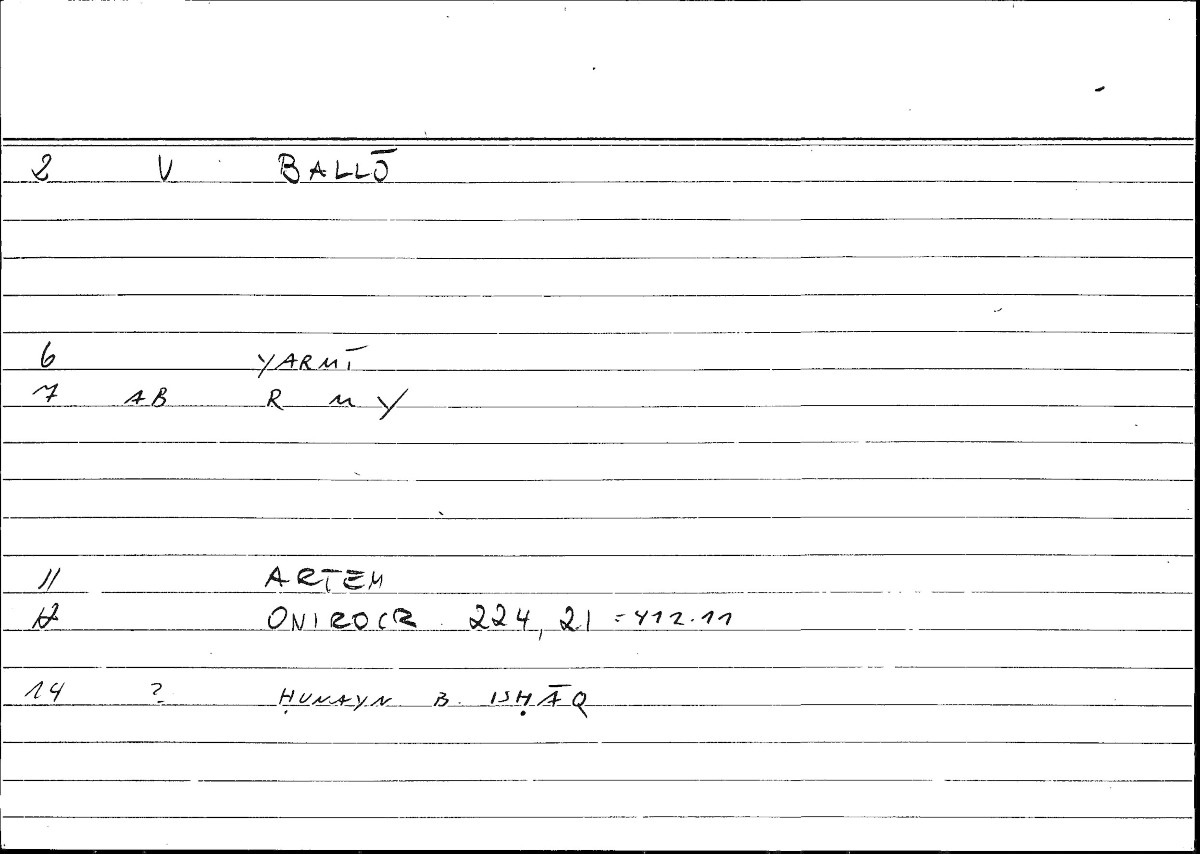 2 V BALLŌ
6 YARMĪ
7 AB R M Y
11 ARTEM
12 ONIROCR 224, 21 = 412.11
14 ? ḤUNAYN B. ISḤĀQ